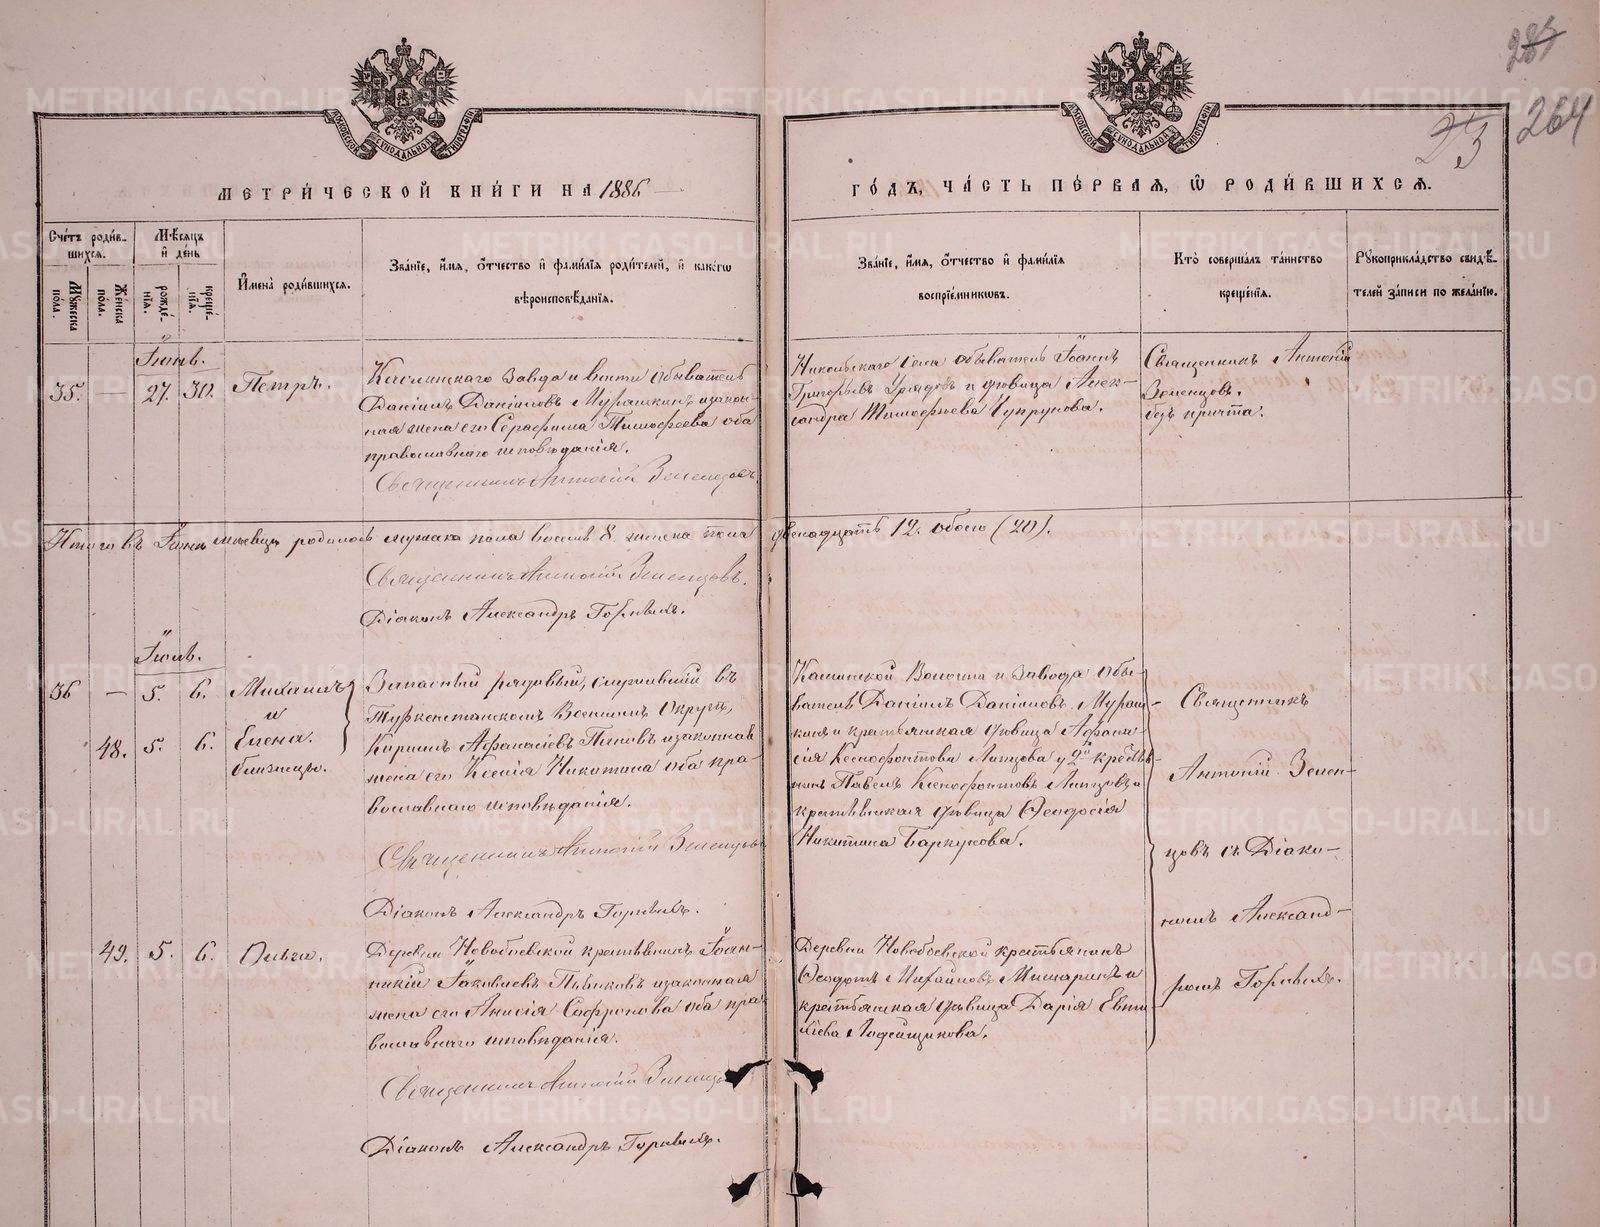 284
264
23
МЕТРИ́ЧЕСКОЙ КНИ́ГИ НА 1886
ГО́ДЪ, ЧА́СТЬ ПЕ́РВАЯ, Ѽ РОДИ́ВШИХСЯ.
Сче́тъ роди́в-
шихся.
Мѣ́сяцъ
и҆ де́нь
Му́жеска по́ла.
Же́нска по́ла.
рожде́-
нїѧ.
креще́-
нїѧ.
И҆мена̀ роди́вшихся.
Зва́нїе, и҆́мя, ѻ҆́тчество и҆ фами́лїѧ роди́телей, и҆ како́гѡ
вѣроисповѣ́данїѧ.
Зва́нїе, и҆́мя, ѻ҆́тчество и҆ фами́лїѧ
воспрїе́мникѡвъ.
Кто̀ соверша́лъ та́инство
креще́нїѧ.
Рꙋкоприкла́дство свидѣ́-
телей за́писи по жела́нїю.
Іюнь.
35. — 27. 30. Петръ.
Каслинскаго Завода и вѣсти обыватель
Даніилъ Даніиловъ Мурашкинъ и закон-
ная жена его Серафима Тимофеева оба
православнаго исповѣданія.
Священникъ Антоній Зеленцовъ.
Никольскаго Села обыватель Іоаннъ
Григорьевъ и дѣвица Алек-
сандра Тимофѣева Чупрунова.
Священникъ Антоній
Зеленцовъ.
безъ причта.
Итого въ Іюнѣ мѣсяцѣ родилось мужска пола восемь 8. женска пола двенадцать 12. обоего (20).
Священникъ Антоній Зеленцовъ.
Діаконъ Александръ Горныхъ.
Іюль.
36 — 5. 6. Михаилъ
и
48. 5. 6. Елена.
близнецы.
Запасный рядовый, служившій въ
Туркестанскомъ Военномъ Округѣ,
Кирилъ Афанасіевъ Пановъ и законная
жена его Ксенія Никитина оба пра-
вославнаго исповѣданія.
Священникъ Антоній Зеленцовъ
Діаконъ Александръ Горныхъ.
Каслинской Волости и Завода Обы-
ватель Даніилъ Даніиловъ Мураш-
кинъ и крестьянская дѣвица Афана-
сія Ксенофонтова Липцова у 2й крестья-
нинъ Павелъ Ксенофонтовъ Липцовъ и
крестьянская дѣвица Ѳеодосія
Никитина Баркунова.
Священникъ
Антоній Зелен-
цовъ съ Діако-
номъ Александ-
ромъ Горныхъ.
49. 5. 6. Ольга.
Деревни Новобоевской крестьянинъ Іоан-
никій Іаковлевъ Пьянковъ и законная
жена его Анисія Софронова оба пра-
вославнаго исповѣданія.
Священникъ Антоній Зеленцовъ
Діаконъ Александръ Горныхъ.
Деревни Новобоевской крестьянинъ
Ѳеодотъ Михайловъ Мишаринъ и
крестьянская дѣвица Дарія Евти-
хіева Лодейщикова.
METRIKI.GASO-URAL.RU